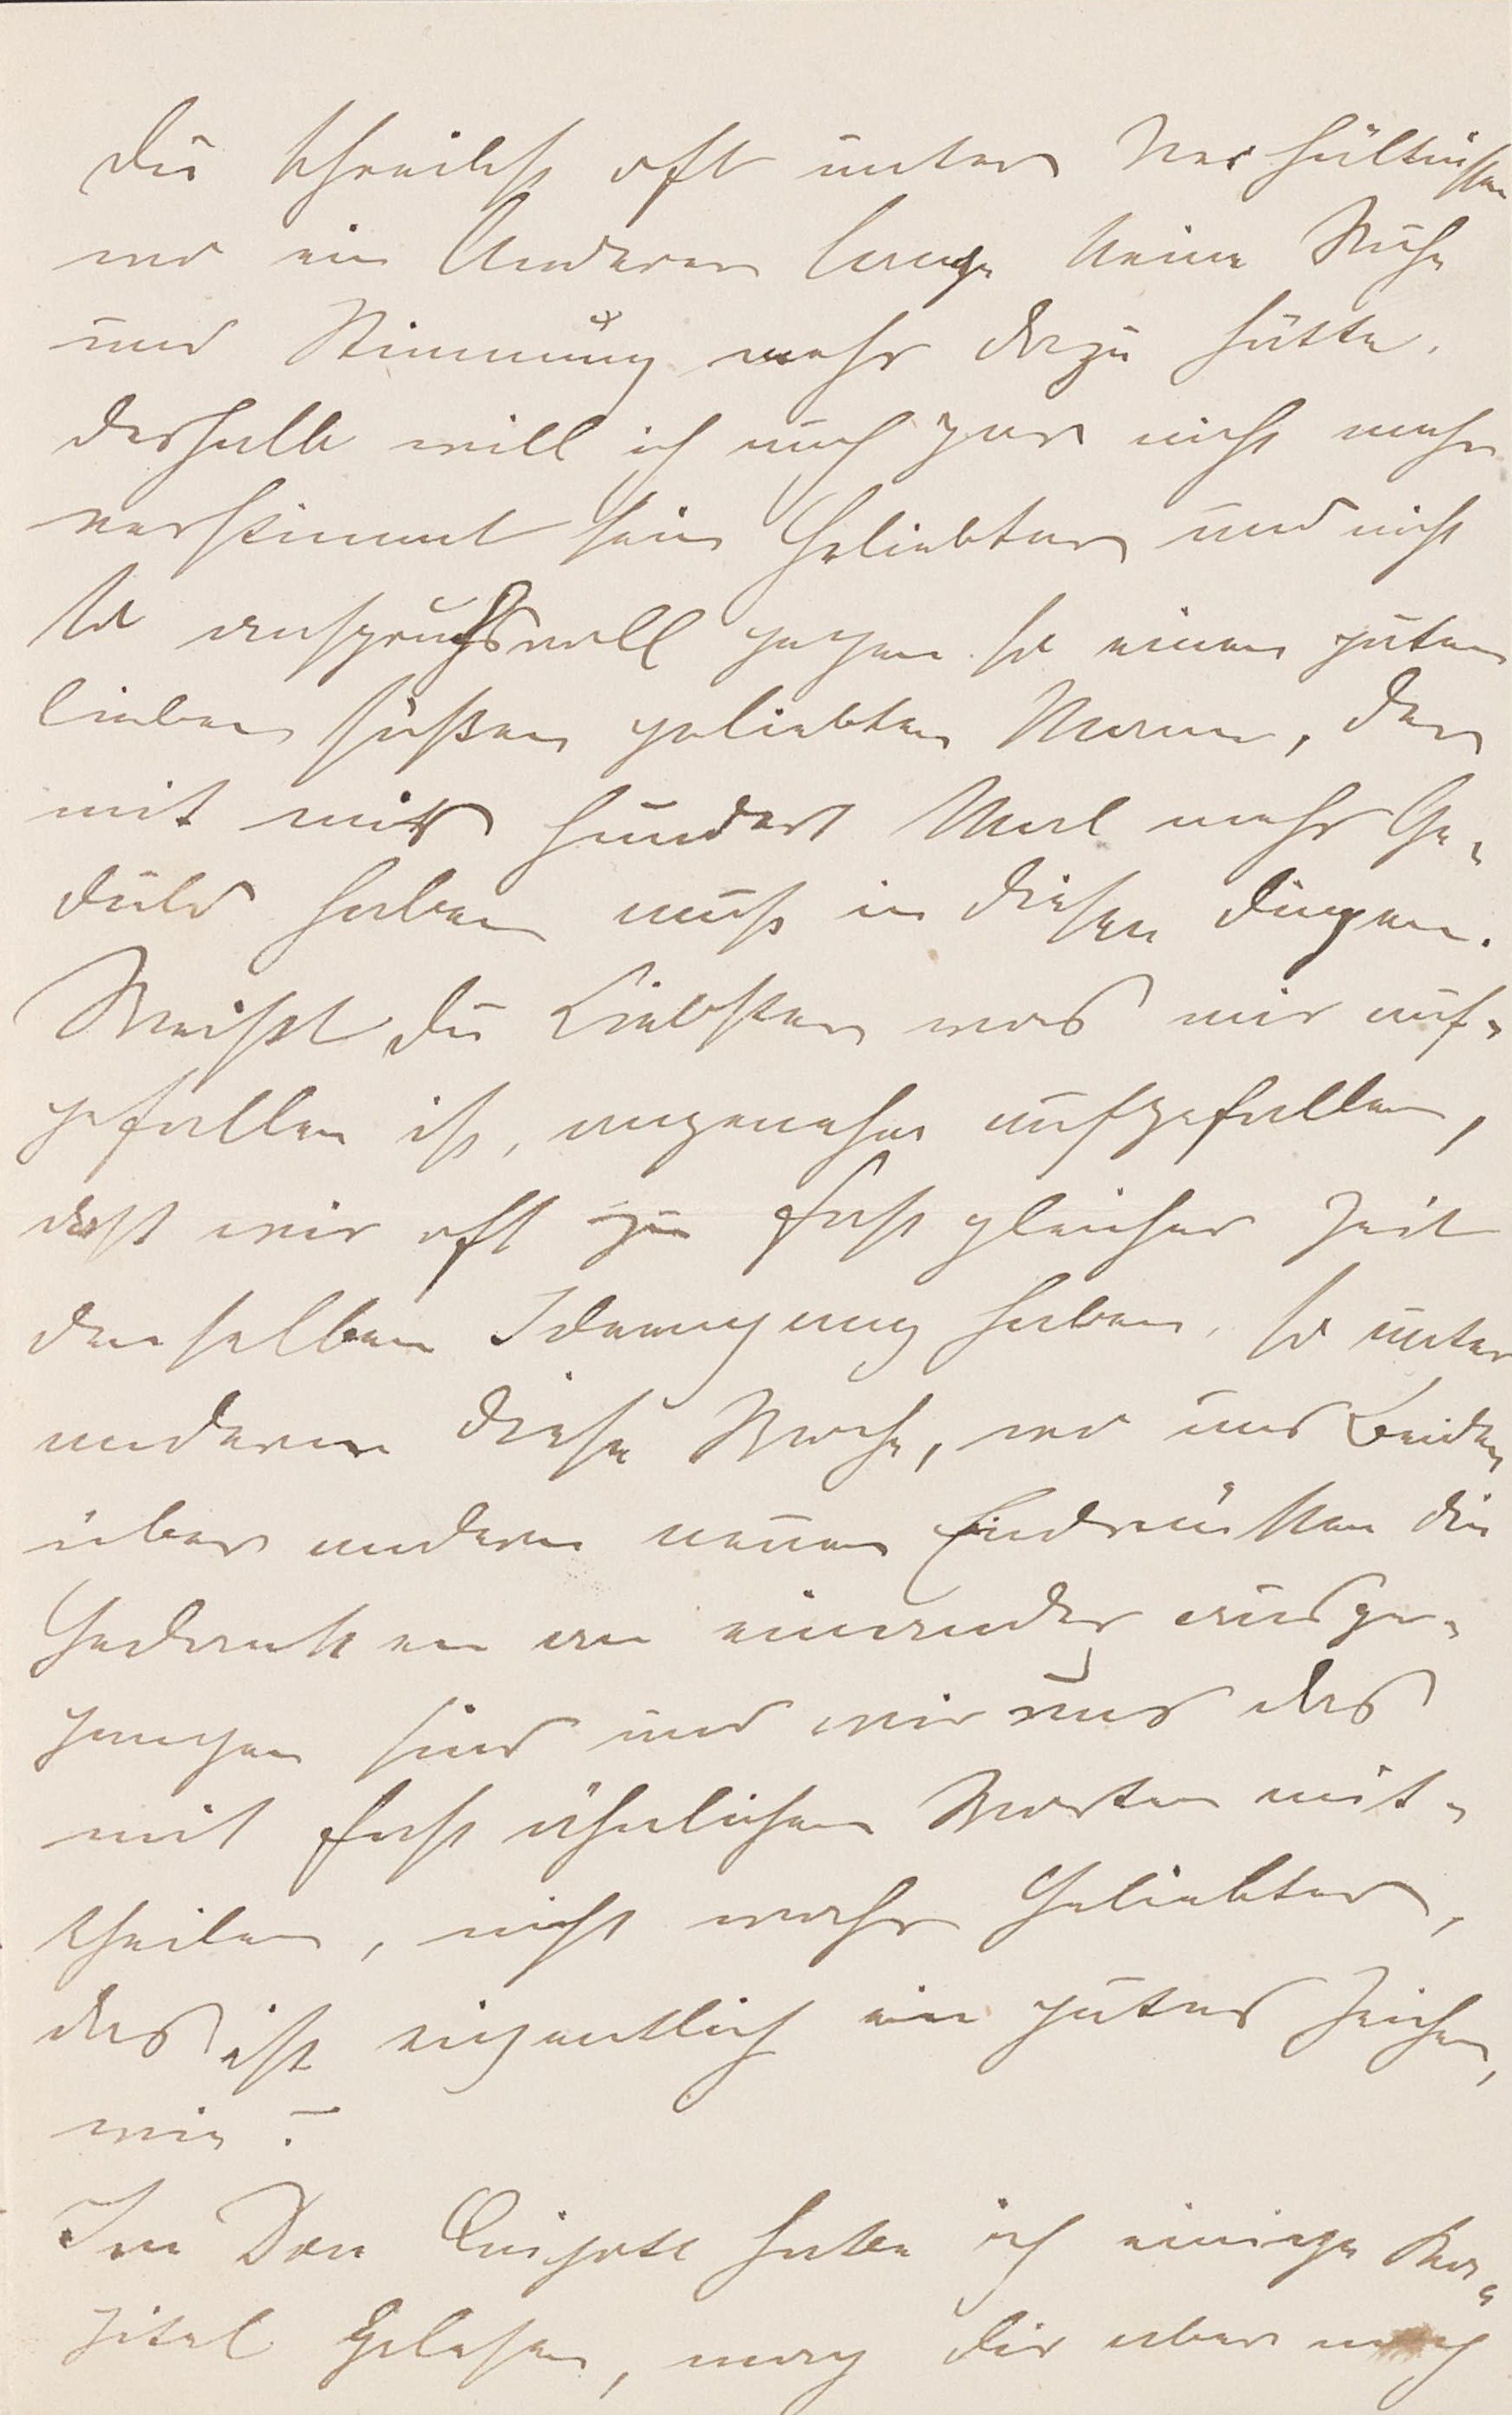 Du schreibst oft unter Verhältnissen
wo ein Anderer lange keine Ruhe
und Stimmung mehr dazu hätte.
deshalb will ich auch gar nicht mehr
verstimmt sein Geliebter und nicht
so anspruchsvoll gegen so einen guten
lieben süßen geliebten Mann, der
mit mir hundert Mal mehr Ge-
duld haben muß in diesen Dingen.
Weißt Du Liebster was mir auf-
gefallen ist, angenehm aufgefallen,
daß wir oft zu fast gleicher Zeit
denselben Ideengang haben, so unter
anderen diese Woche, wo uns Beiden
über andern neuen Eindrücken die
Gedanken an einander ausge-
gangen sind und wir uns das
mit fast ähnlichen Worten mit-
theilen, nicht wahr Geliebter,
das ist eigentlich ein gutes Zeichen,
wie?
Im Don Quixote habe ich einige Ka-
pitel gelesen, mag Dir aber noch